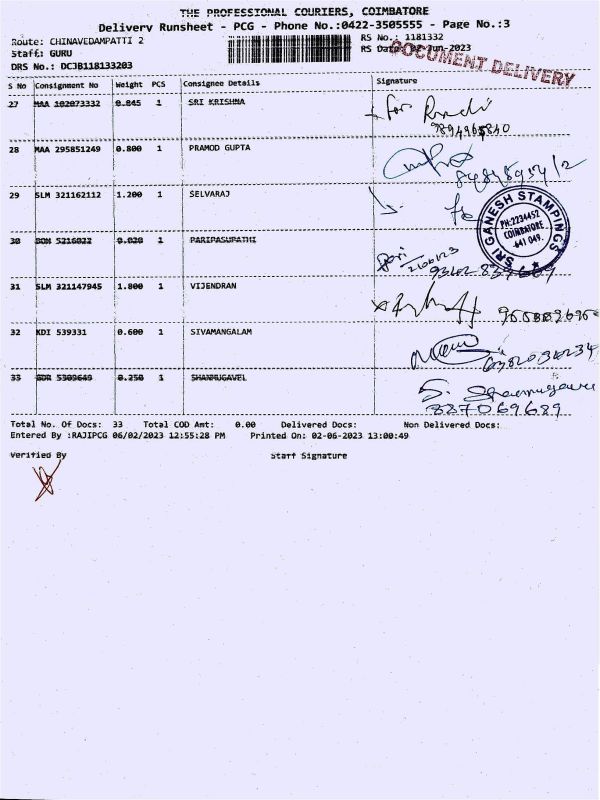 THE PROFESSIONAL COURIERS, COIMBATORE
Delivery Runsheet - PCG - Phone No.:0422-3505555 - Page No.:3
Route: CHINAVEDAMPATTI 2
RS No.: 1181332
Staff: GURU
RS Date: 02-Jun-2023
DOCUMENT DELIVERY
DRS No.: DCJB118133203
S No Consignment No Weight PCS Consignee Details Signature
27 MAA 102073332 0.045 1 SRI KRISHNA
28 MAA 295851249 0.800 1 PRAMOD GUPTA
29 SLM 321162112 1.200 1 SELVARAJ
SRI GANESH STAMPINGS
PH:2234452
COIMBATORE
641 049.
30 BOM 5216022 0.020 1 PARIPASUPATHI
31 SLM 321147945 1.800 1 VIJENDRAN
32 KDI 539331 0.600 1 SIVAMANGALAM
33 5309649 0.250 1 SHANMUGAVEL
887069689
Total No. Of Docs: 33 Total COD Amt: 0.00 Delivered Docs: Non Delivered Docs:
Entered By :RAJIPCG 06/02/2023 12:55:28 PM Printed On: 02-06-2023 13:00:49
Verified By Staff Signature